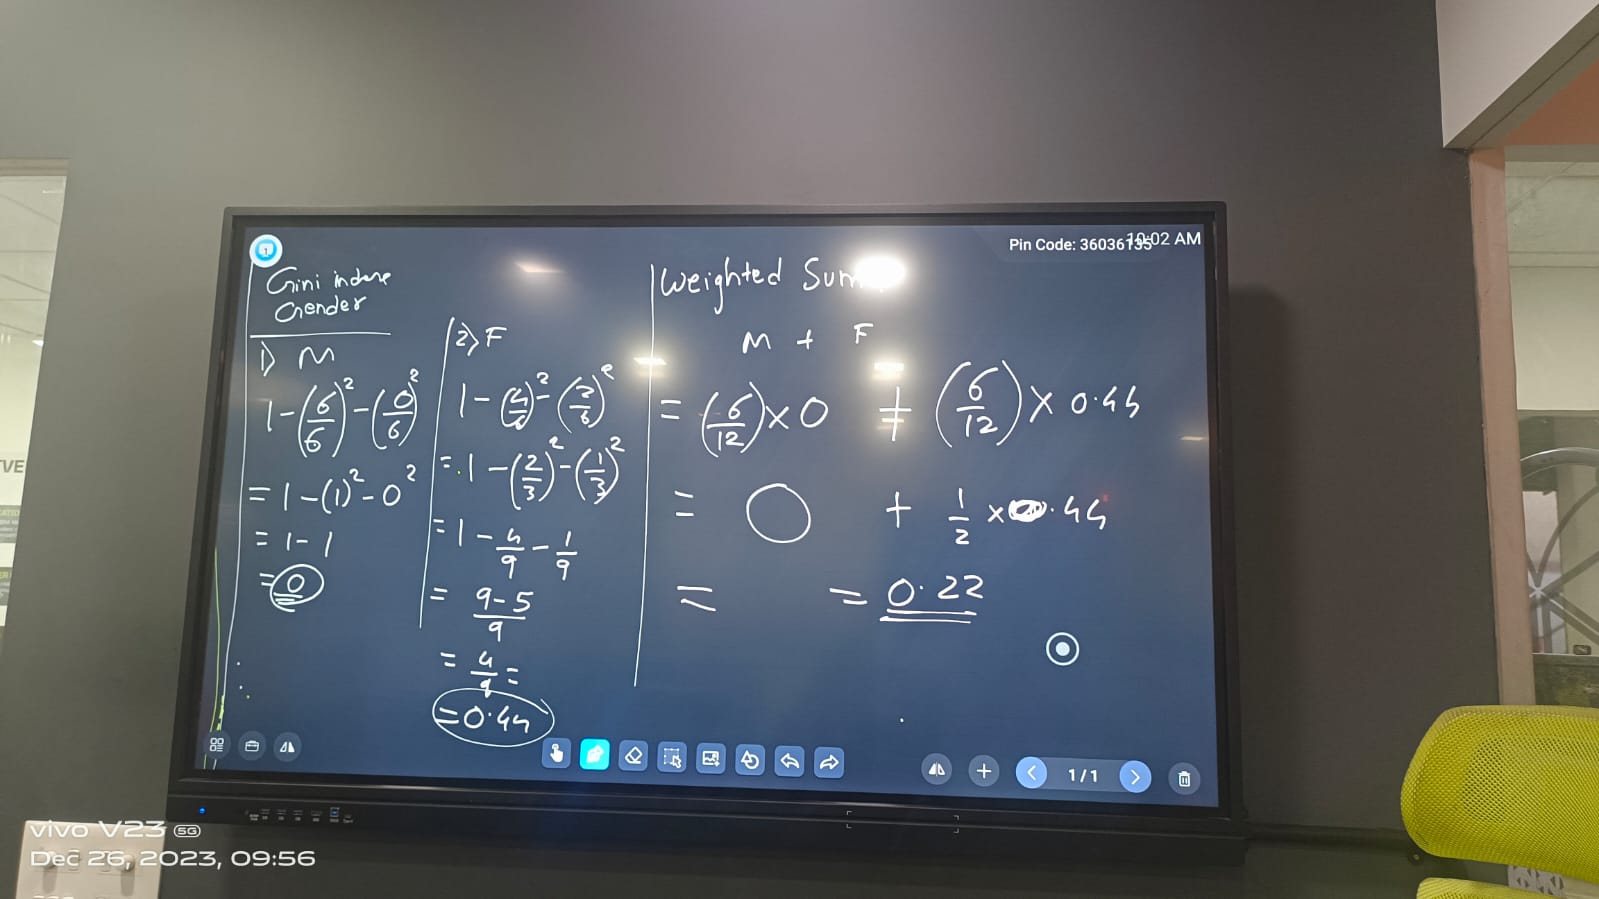 Pin Code: 36036135
10:02 AM
Gini index
Gender
1) M
1-(6/6)²-(0/6)²
= 1-(1)²-0²
= 1-1
= 0
2) F
1-(4/6)²-(2/6)²
= 1-(2/3)²-(1/3)²
= 1-4/9-1/9
= 9-5/9
= 4/9 =
= 0.44
Weighted Sum
M + F
= (6/12)×0 + (6/12)×0.44
= 0 + 1/2×0.44
= = 0.22
1/1
vivo V23 5G
Dec 26, 2023, 09:56